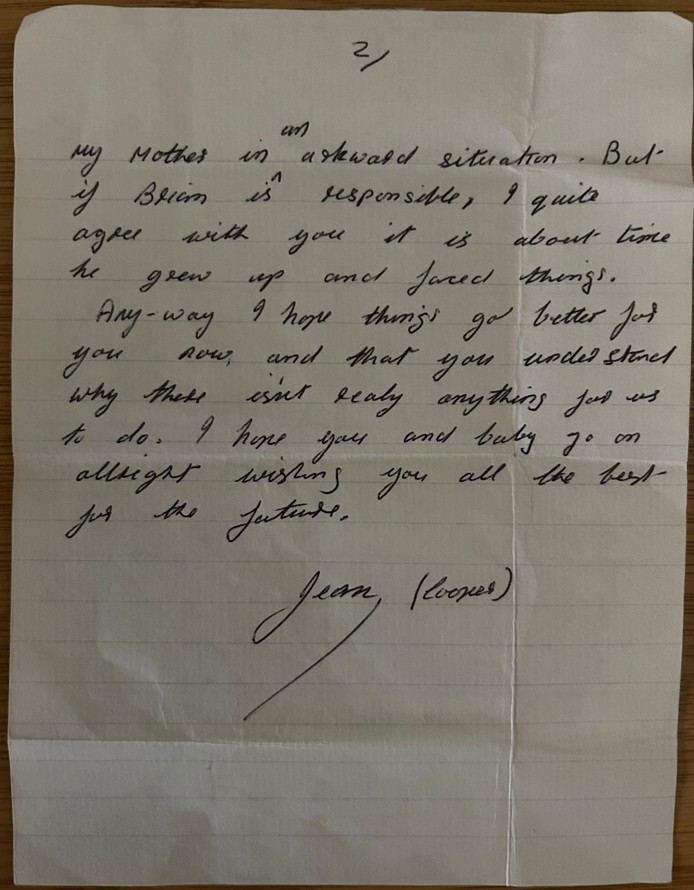 2/
an
my Mother in ^ arkward situation. But
if Brian is responsible, I quite
agree with you it is about time
he grew up and faced things.
Any-way I hope things go better for
you now, and that you understand
why there isn't realy anything for us
to do. I hope you and baby go on
allright wishing you all the best
for the future.
Jean, (Cooper)